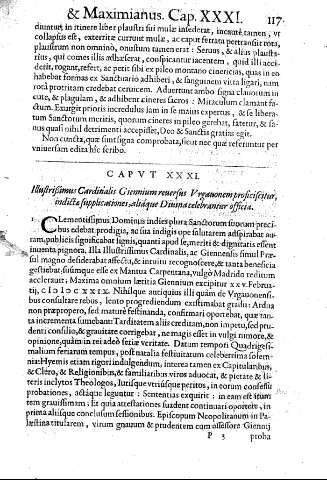 & Maximianus. Cap. XXXI. 117
diuntur, in itinere liber plaustri sui mulæ insederat, incautè tamen, vt
collapsus est, exterritæ currunt mulæ, ac caput ferrata pertransijt rota,
plaustrum non omninò, onustum tamen erat: Seruus, & alius plausta-
rius, qui comes illis adhæserat, conspicantur iacentem, quid illi acci-
derit, rogant, refert, ac petit sibi ex pileo montano cinericias, quas in eo
habebat formas ex Sanctuario adhiberi, & sanguinem vitta ligari, nam
rota protritam credebat ceruicem. Aduertunt ambo signa clauorum in
cute, & plagulam, & adhibent cineres sacros: Miraculum clamant fa-
ctum. Exurgit priori incredulus iam in se maius expertus, & se libera-
tum Sanctorum meritis, quorum cineres in pileo gerebat, fatetur, & sa-
nus quasi nihil detrimenti accepisset, Deo & Sanctis gratias egit.
Non cuncta, quæ sunt signa comprobata, sicut nec quæ referuntur per
vniuersam edita hîc scribo.
CAPVT XXXI.
Illustrissimus Cardinalis Giennium reuersus Vrgauonem proficiscitur,
indicta supplicationes, aliáque Diuina celebrantur officia.
1 CLementissimus Dominus indies plura Sanctorum suorum precи-
bus edebat prodigia, ac sua indigis ope salutarem adspirabat au-
ram, publicis significabat signis, quanti apud se, meriti & dignitatis essent
inuenta pignora. Illa Illustrissimus Cardinalis, ac Giennensis simul Præ-
sul magno desiderabat affectu, & intuitu recognoscere, & tanta beneficia
gestiebat, suúmque esse ex Mantua Carpentana, vulgò Madrido reditum
accelerauit: Maxima omnium lætitia Giennium excipitur xxv. Februa-
rij, CIƆIƆCXXIX. Nihilque antiquius illi quàm de Vrgauonensi-
bus consultare rebus, lento progrediendum existimabat gradu: Ardua
non præpropero, sed maturè festinanda, confirmari oportebat, quæ tan-
ta incrementa sumebant: Tarditatem alij creditam, non impetu, sed pru-
denti consilio, & grauitate corrigebat, ne magis esset in vulgi rumore, &
opinione, quàm in rei adeò seriæ veritate. Datum tempori Quadragesi-
malium feriarum tempus, post natalia festiuitatum celeberrima solem-
nia: Hyemis etiam rigori indulgendum, interea tamen ex Capitularibus,
& Clero, & Religionibus, & familiaribus viros aduocat, & pietate & lit-
teris inclytos Theologos, Iurisque vtriúsque peritos, in eorum consessu
probationes, actáque leguntur: Sententias exquirit: in eam est itum
tem grauissimam: Et quia attestationes suadent continuari oportere, in
prima aliisque conclusum sessionibus. Episcopum Neopolitanum in Pa-
læstina titularem, virum gnauum & prudentem cum assessore Giennij
P 3 proba